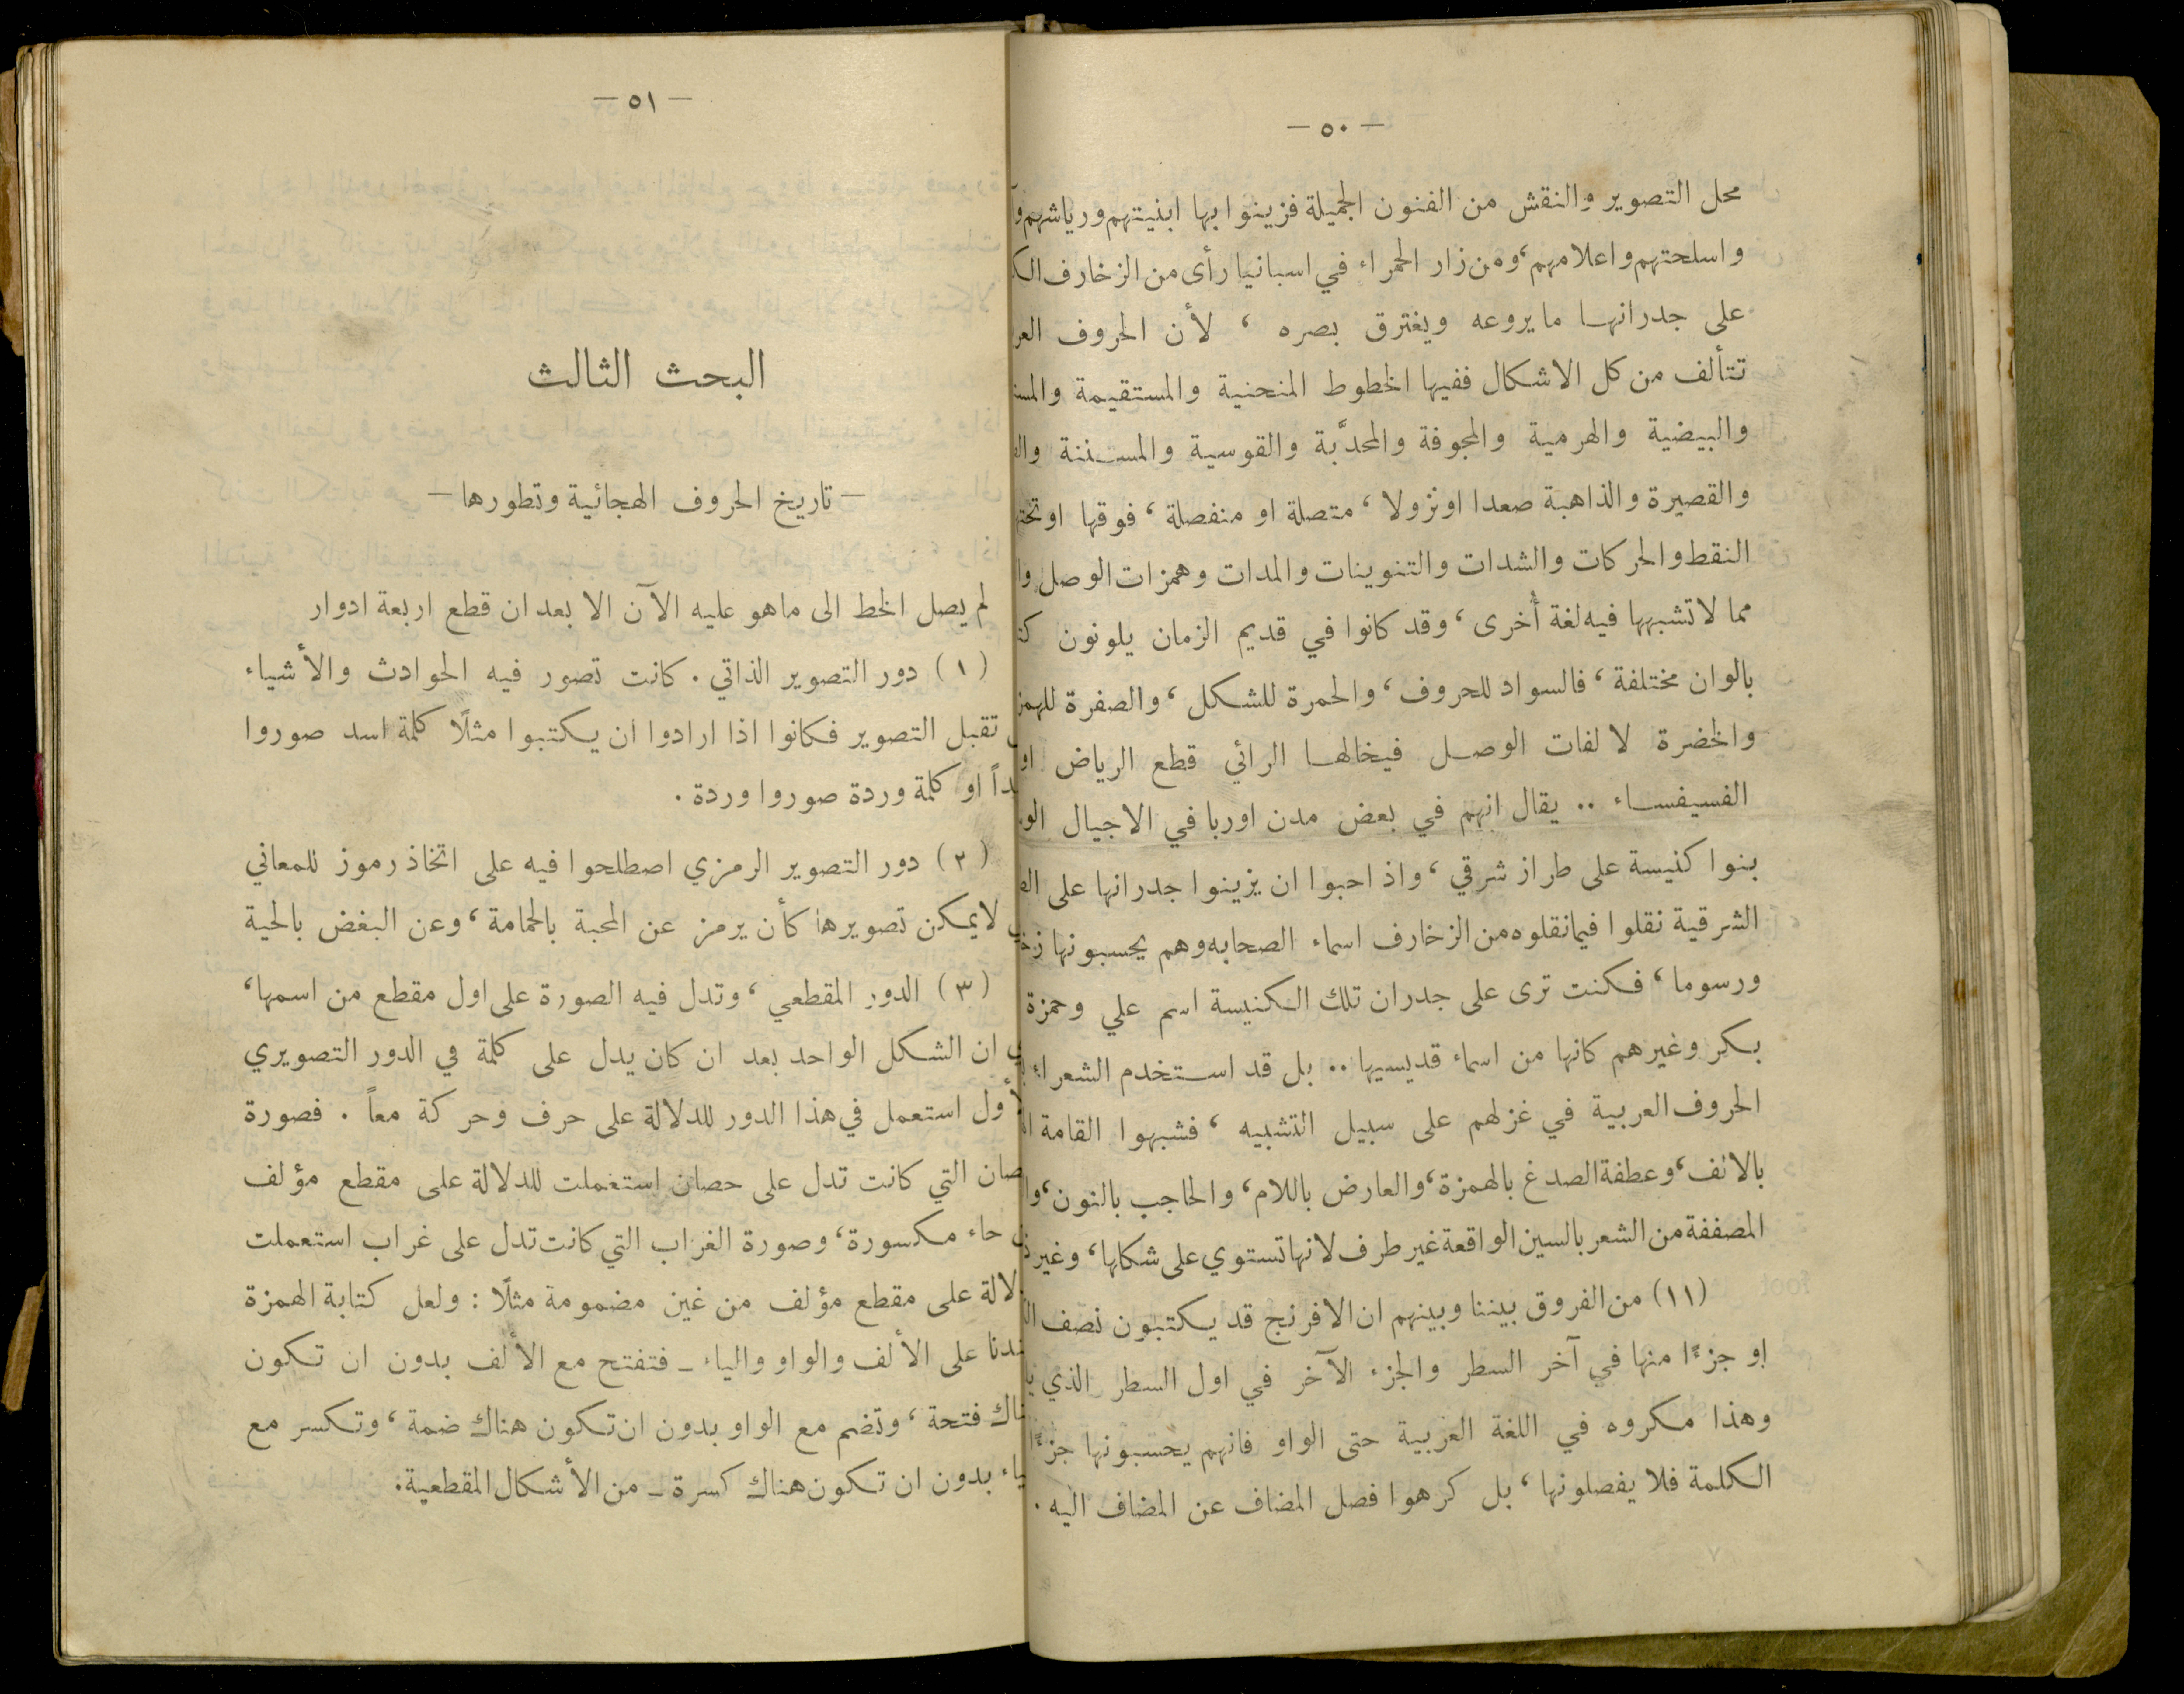 — ٥٠ —
محل التصوير والنقش من الفنون الجميلة فزينوا بها ابنيتهم ورياشهم
واسلحتهم واعلامهم، ومن زار الحمراء في اسبانيا رأى من الزخارف
على جدرانها ما يروعه ويغترق بصره ، لأن الحروف
تتألف من كل الاشكال ففيها الخطوط المنحنية والمستقيمة
والبيضية والهرمية والمجوفة والمحدَّبة والقوسية والمسننة
والقصيرة والذاهبة صعدا او نزولا ، متصلة او منفصلة ، فوقها او
النقط والحركات والشدات والتنوينات والمدات وهمزات الوصل
مما لا تشبهها فيه لغة أُخرى ، وقد كانوا في قديم الزمان يلونون
بالوان مختلفة ، فالسواد للحروف ، والحمرة للشكل ، والصفرة
والخضرة لالفات الوصل فيخالها الرائي قطع الرياض او
الفسيفساء .. يقال انهم في بعض مدن اوربا في الاجيال
بنوا كنيسة على طراز شرقي ، واذ احبوا ان يزينوا جدرانها على
الشرقية نقلوا فيما نقلوه من الزخارف اسماء الصحابه وهم يحسبونها
ورسوما ، فكنت ترى على جدران تلك الكنيسة اسم علي وحمزة
بكر وغيرهم كانها من اسماء قديسيها .. بل قد استخدم الشعراء
الحروف العربية في غزلهم على سبيل التشبيه ، فشبهوا القامة
بالالف، وعطفة الصدغ بالهمزة، والعارض باللام، والحاجب بالنون،
المصففة من الشعر بالسين الواقعة غير طرف لانها تستوي على شكلها، وغير
(١١) من الفروق بيننا وبينهم ان الافرنج قد يكتبون نصف
او جزءًا منها في آخر السطر والجزء الآخر في اول السطر الذي
وهذا مكروه في اللغة العربية حتى الواو فانهم يحسبونها جزءًا
الكلمة فلا يفصلونها ، بل كرهوا فصل المضاف عن المضاف اليه .
— ٥١ —
البحث الثالث
— تاريخ الحروف الهجائية وتطورها —
لم يصل الخط الى ماهو عليه الآن الا بعد ان قطع اربعة ادوار
(١) دور التصوير الذاتي . كانت تصور فيه الحوادث والأشياء
تقبل التصوير فكانوا اذا ارادوا ان يكتبوا مثلًا كلمة اسد صوروا
او كلمة وردة صوروا وردة .
(٢) دور التصوير الرمزي اصطلحوا فيه على اتخاذ رموز للمعاني
لايمكن تصويرها كأن يرمز عن المحبة بالحمامة ، وعن البغض بالحية
(٣) الدور المقطعي ، وتدل فيه الصورة على اول مقطع من اسمها،
ان الشكل الواحد بعد ان كان يدل على كلمة في الدور التصويري
استعمل في هذا الدور للدلالة على حرف وحركة معاً . فصورة
التي كانت تدل على حصان استعملت للدلالة على مقطع مؤلف
حاء مكسورة، وصورة الغراب التي كانت تدل على غراب استعملت
على مقطع مؤلف من غين مضمومة مثلًا : ولعل كتابة الهمزة
على الألف والواو والياء ـ فتفتح مع الألف بدون ان تكون
فتحة ، وتضم مع الواو بدون ان تكون هناك ضمة ، وتكسر مع
بدون ان تكون هناك كسرة ـ من الأشكال المقطعية.